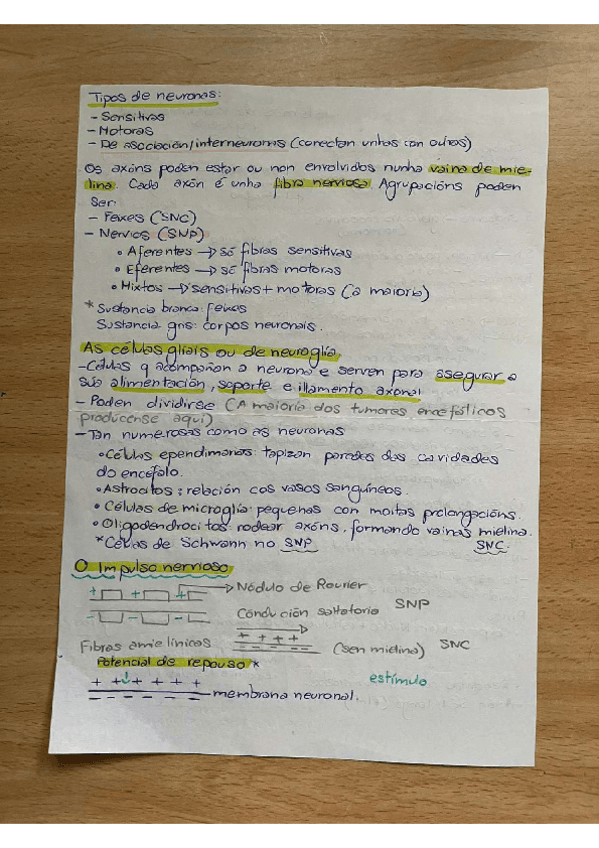 Tipos de neuronas:
- Sensitivas
- Motoras
- De asociación/interneuronas (conectan unhas con outras)
Os axóns poden estar ou non envolvidos nunha vaina de mie-
lina. Cada axón é unha fibra nerviosa. Agrupacións poden
ser:
- Feixes (SNC)
- Nervios (SNP)
• Aferentes → só fibras sensitivas
• Eferentes → só fibras motoras
• Mixtos → sensitivas + motoras (a maioría)
* Sustancia branca: feixes
Sustancia gris: corpos neuronais.
As células gliais ou de neuroglía
- Células q acompañan a neurona e serven para asegurar a
súa alimentación, soporte e illamento axonal
- Poden dividirse (A maioría dos tumores encefálicos
prodúcense aquí)
- Tan numerosas como as neuronas
• Células ependimarias: tapizan paredes das cavidades
do encéfalo.
• Astrocitos: relación cos vasos sanguíneos.
• Células de microglía: pequenas con moitas prolongacións.
• Oligodendrocitos: rodear axóns, formando vainas mielina.
* Células de Schwann no SNP SNC.
O Impulso nervioso
+ + + → Nódulo de Ranvier
- - - Condución saltatoria SNP
Fibras amielínicas + + + + (sen mielina) SNC
- - - -
Potencial de repouso *
estímulo
+ + + + + +
- - - - - - membrana neuronal.